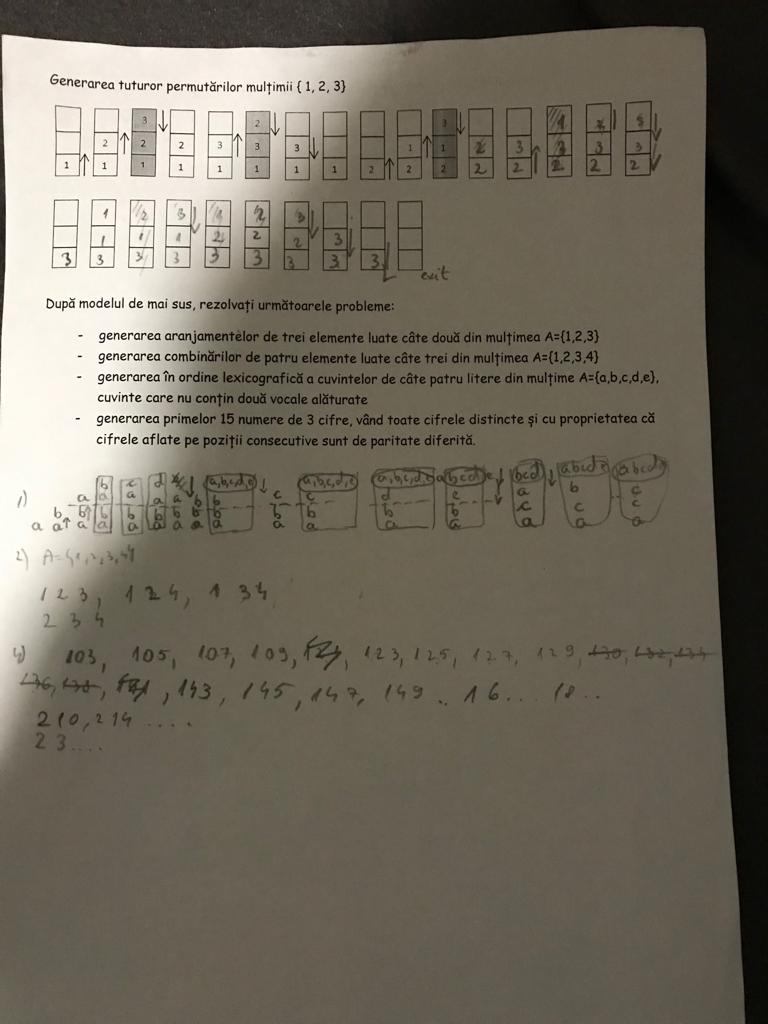 Generarea tuturor permutărilor mulțimii { 1, 2, 3}
3 2 3 1
2 2 2 3 3 3 3 1 1 2 3 3 3 3
1 1 1 1 1 1 1 1 2 2 2 2 2 2 2 2
1 2 3 1 2 3
1 1 1 2 2 2 3
3 3 3 3 3 3 3 3 3
exit
După modelul de mai sus, rezolvați următoarele probleme:
- generarea aranjamentelor de trei elemente luate câte două din mulțimea A={1,2,3}
- generarea combinărilor de patru elemente luate câte trei din mulțimea A={1,2,3,4}
- generarea în ordine lexicografică a cuvintelor de câte patru litere din mulțime A={a,b,c,d,e},
cuvinte care nu conțin două vocale alăturate
- generarea primelor 15 numere de 3 cifre, vând toate cifrele distincte și cu proprietatea că
cifrele aflate pe poziții consecutive sunt de paritate diferită.
b c d a,b,c,d,e a,b,c,d,e a,b,c,d,e abcde bcd abcde abcde
a a a a a b b c c d e a b c
b b b b b b b b b b b c c c
1) a a a a a a a a a a a a a a a
2) A={1,2,3,4}
1 2 3, 1 2 4, 1 3 4
2 3 4
4) 103, 105, 107, 109, 123, 125, 127, 129, 130, 132, 134
136, 138, 143, 145, 147, 149 .. 16... 18..
210, 214 ....
2 3....